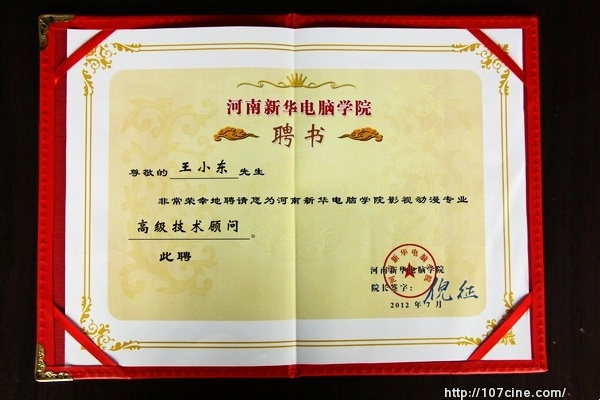 河南新华电脑学院
聘书
尊敬的 王小东 先生
非常荣幸地聘请您为河南新华电脑学院影视动漫专业
高级技术顾问。
此聘
河南新华电脑学院
河南新华电脑学院
院长签字：倪征
2012 年 7 月
http://107cine.com/